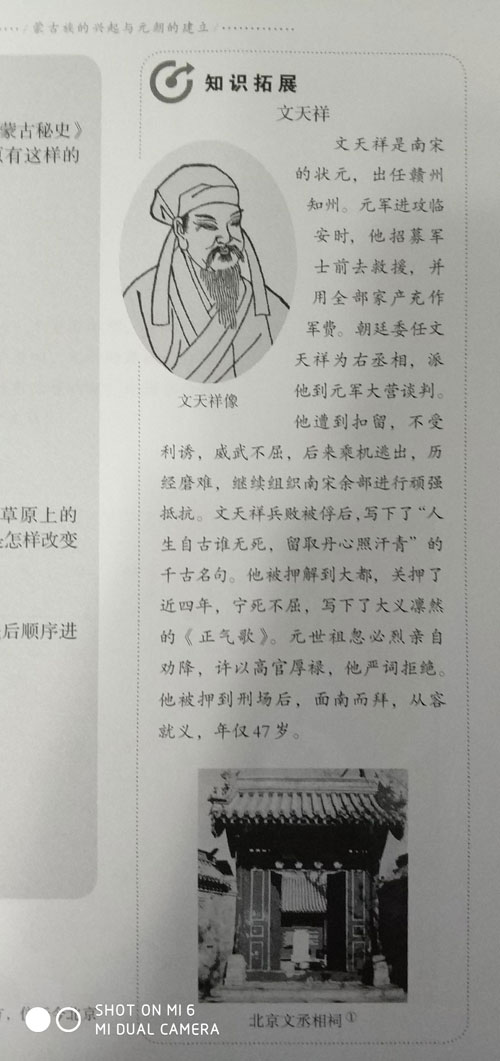 蒙古族的兴起与元朝的建立
蒙古秘史》
有这样的
草原上的
怎样改变
后顺序进
知识拓展
文天祥
文天祥是南宋
的状元，出任赣州
知州。元军进攻临
安时，他招募军
士前去救援，并
用全部家产充作
军费。朝廷委任文
天祥为右丞相，派
他到元军大营谈判。
他遭到扣留，不受
利诱，威武不屈，后来乘机逃出，历
经磨难，继续组织南宋余部进行顽强
抵抗。文天祥兵败被俘后，写下了“人
生自古谁无死，留取丹心照汗青”的
千古名句。他被押解到大都，关押了
近四年，宁死不屈，写下了大义凛然
的《正气歌》。元世祖忽必烈亲自
劝降，许以高官厚禄，他严词拒绝。
他被押到刑场后，面南而拜，从容
就义，年仅47岁。
文天祥像
北京文丞相祠①
今北京
SHOT ON MI 6
MI DUAL CAMERA